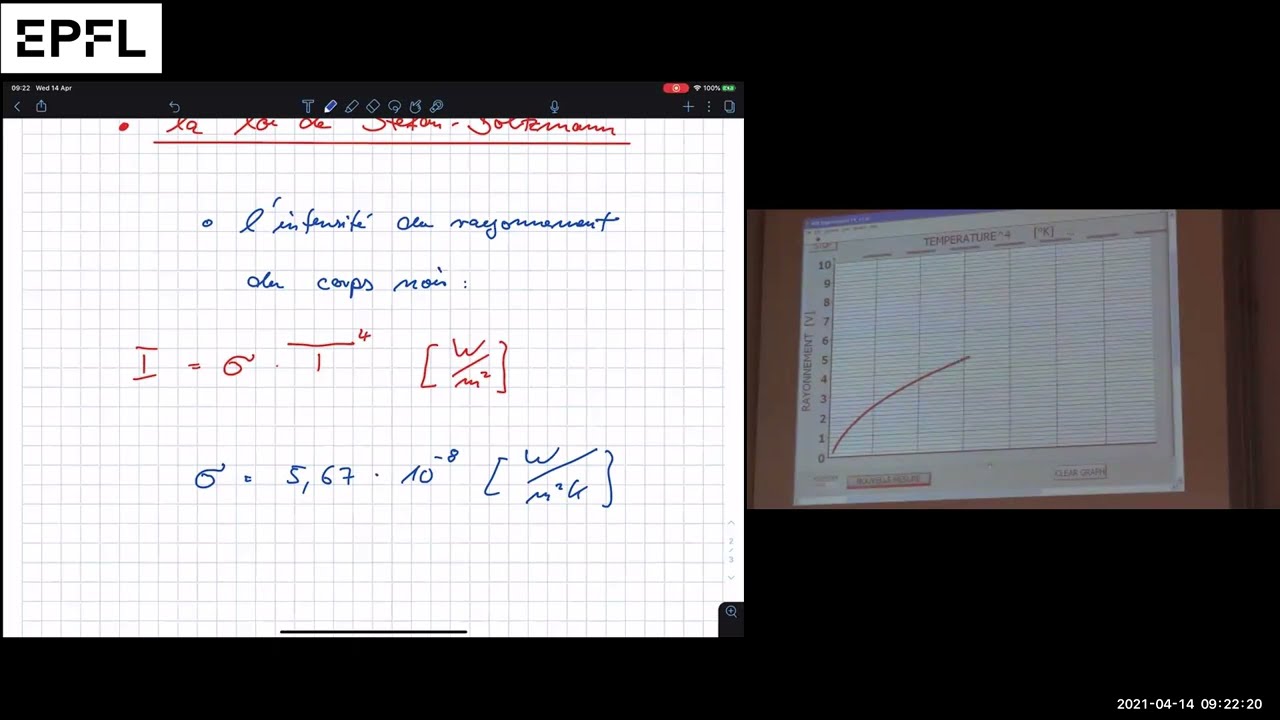 EPFL
09:22 Wed 14 Apr
100%
• la loi de Stefan-Boltzmann
∘ l'intensité du rayonnement
du corps noir :
I = σ · T⁴ [W/m²]
σ = 5,67 · 10⁻⁸ [W/m²K]
2
/
3
TEMPERATURE^4 [°K]
RAYONNEMENT [V]
10
9
8
7
6
5
4
3
2
1
0
NOUVELLE MESURE
CLEAR GRAPH
2021-04-14 09:22:20